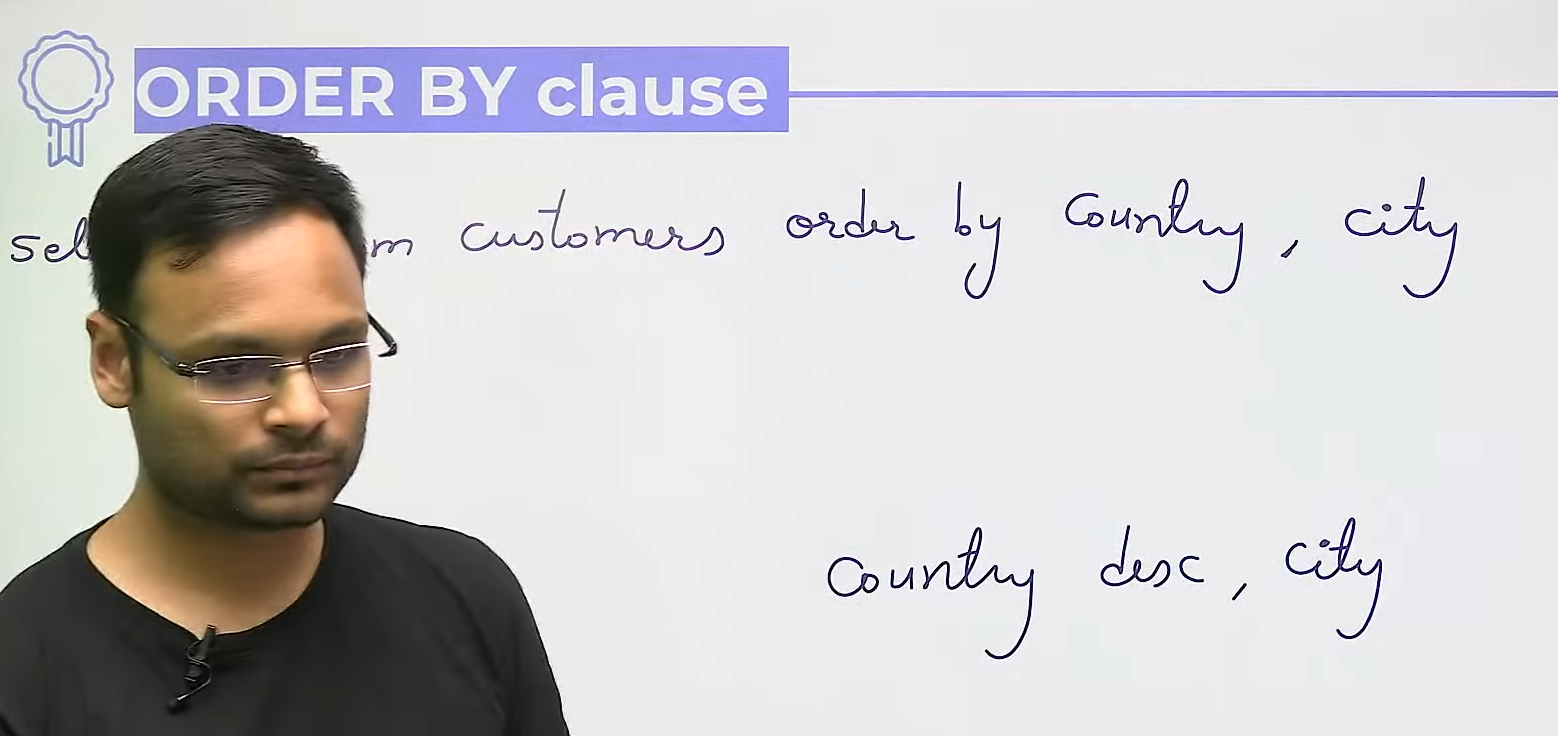 ORDER BY clause
sel m customers order by Country, city
Country desc, city